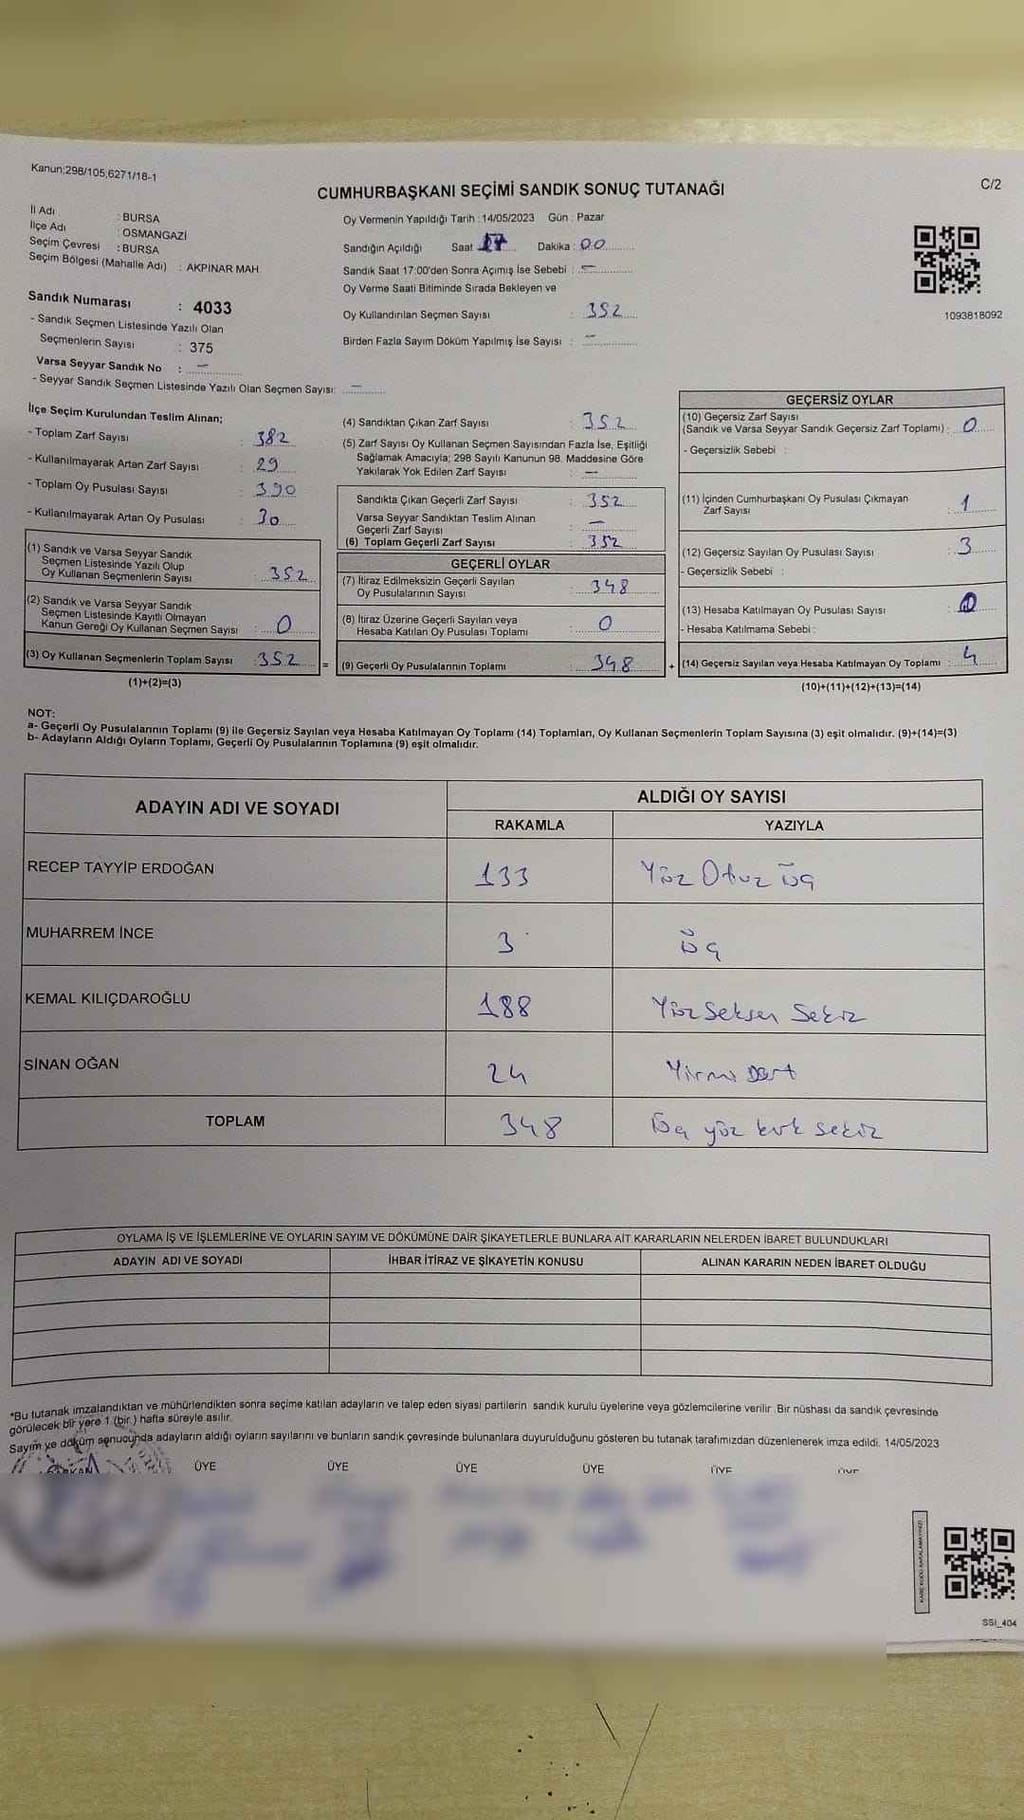 Kanun:298/105,6271/18-1
C/2
CUMHURBAŞKANI SEÇİMİ SANDIK SONUÇ TUTANAĞI
İl Adı : BURSA
İlçe Adı : OSMANGAZİ
Seçim Çevresi : BURSA
Seçim Bölgesi (Mahalle Adı) : AKPINAR MAH.
Oy Vermenin Yapıldığı Tarih : 14/05/2023 Gün : Pazar
Sandığın Açıldığı Saat 17 Dakika : 00
Sandık Saat 17:00'den Sonra Açımış İse Sebebi : —
Oy Verme Saati Bitiminde Sırada Bekleyen ve
Oy Kullandırılan Seçmen Sayısı : 352
Birden Fazla Sayım Döküm Yapılmış İse Sayısı : —
1093818092
Sandık Numarası : 4033
- Sandık Seçmen Listesinde Yazılı Olan
Seçmenlerin Sayısı : 375
Varsa Seyyar Sandık No : —
- Seyyar Sandık Seçmen Listesinde Yazılı Olan Seçmen Sayısı: —
İlçe Seçim Kurulundan Teslim Alınan;
- Toplam Zarf Sayısı : 382
- Kullanılmayarak Artan Zarf Sayısı : 29
- Toplam Oy Pusulası Sayısı : 390
- Kullanılmayarak Artan Oy Pusulası : 30
(1) Sandık ve Varsa Seyyar Sandık
Seçmen Listesinde Yazılı Olup
Oy Kullanan Seçmenlerin Sayısı : 352
(2) Sandık ve Varsa Seyyar Sandık
Seçmen Listesinde Kayıtlı Olmayan
Kanun Gereği Oy Kullanan Seçmen Sayısı : 0
(3) Oy Kullanan Seçmenlerin Toplam Sayısı : 352 =
(1)+(2)=(3)
(4) Sandıktan Çıkan Zarf Sayısı : 352
(5) Zarf Sayısı Oy Kullanan Seçmen Sayısından Fazla İse, Eşitliği
Sağlamak Amacıyla; 298 Sayılı Kanunun 98. Maddesine Göre
Yakılarak Yok Edilen Zarf Sayısı : —
Sandıkta Çıkan Geçerli Zarf Sayısı : 352
Varsa Seyyar Sandıktan Teslim Alınan
Geçerli Zarf Sayısı : —
(6) Toplam Geçerli Zarf Sayısı : 352
GEÇERLİ OYLAR
(7) İtiraz Edilmeksizin Geçerli Sayılan
Oy Pusulalarının Sayısı : 348
(8) İtiraz Üzerine Geçerli Sayılan veya
Hesaba Katılan Oy Pusulası Toplamı : 0
(9) Geçerli Oy Pusulalarının Toplamı : 348 +
GEÇERSİZ OYLAR
(10) Geçersiz Zarf Sayısı
(Sandık ve Varsa Seyyar Sandık Geçersiz Zarf Toplamı) : 0
- Geçersizlik Sebebi :
(11) İçinden Cumhurbaşkanı Oy Pusulası Çıkmayan
Zarf Sayısı : 1
(12) Geçersiz Sayılan Oy Pusulası Sayısı : 3
- Geçersizlik Sebebi :
(13) Hesaba Katılmayan Oy Pusulası Sayısı : 0
- Hesaba Katılmama Sebebi :
(14) Geçersiz Sayılan veya Hesaba Katılmayan Oy Toplamı : 4
(10)+(11)+(12)+(13)=(14)
NOT:
a- Geçerli Oy Pusulalarının Toplamı (9) ile Geçersiz Sayılan veya Hesaba Katılmayan Oy Toplamı (14) Toplamları, Oy Kullanan Seçmenlerin Toplam Sayısına (3) eşit olmalıdır. (9)+(14)=(3)
b- Adayların Aldığı Oyların Toplamı, Geçerli Oy Pusulalarının Toplamına (9) eşit olmalıdır.
ADAYIN ADI VE SOYADI ALDIĞI OY SAYISI
RAKAMLA YAZIYLA
RECEP TAYYİP ERDOĞAN 133 Yüz Otuz üç
MUHARREM İNCE 3 üç
KEMAL KILIÇDAROĞLU 188 Yüz Seksen Sekiz
SİNAN OĞAN 24 Yirmi Dört
TOPLAM 348 Üç yüz kırk sekiz
OYLAMA İŞ VE İŞLEMLERİNE VE OYLARIN SAYIM VE DÖKÜMÜNE DAİR ŞİKAYETLERLE BUNLARA AİT KARARLARIN NELERDEN İBARET BULUNDUKLARI
ADAYIN ADI VE SOYADI İHBAR İTİRAZ VE ŞİKAYETİN KONUSU ALINAN KARARIN NEDEN İBARET OLDUĞU
*Bu tutanak imzalandıktan ve mühürlendikten sonra seçime katılan adayların ve talep eden siyasi partilerin sandık kurulu üyelerine veya gözlemcilerine verilir. Bir nüshası da sandık çevresinde
görülecek bir yere 1 (bir) hafta süreyle asılır.
Sayım ve döküm sonucunda adayların aldığı oyların sayılarını ve bunların sandık çevresinde bulunanlara duyurulduğunu gösteren bu tutanak tarafımızdan düzenlenerek imza edildi. 14/05/2023
ÜYE ÜYE ÜYE ÜYE ÜYE ÜYE
SSI_404